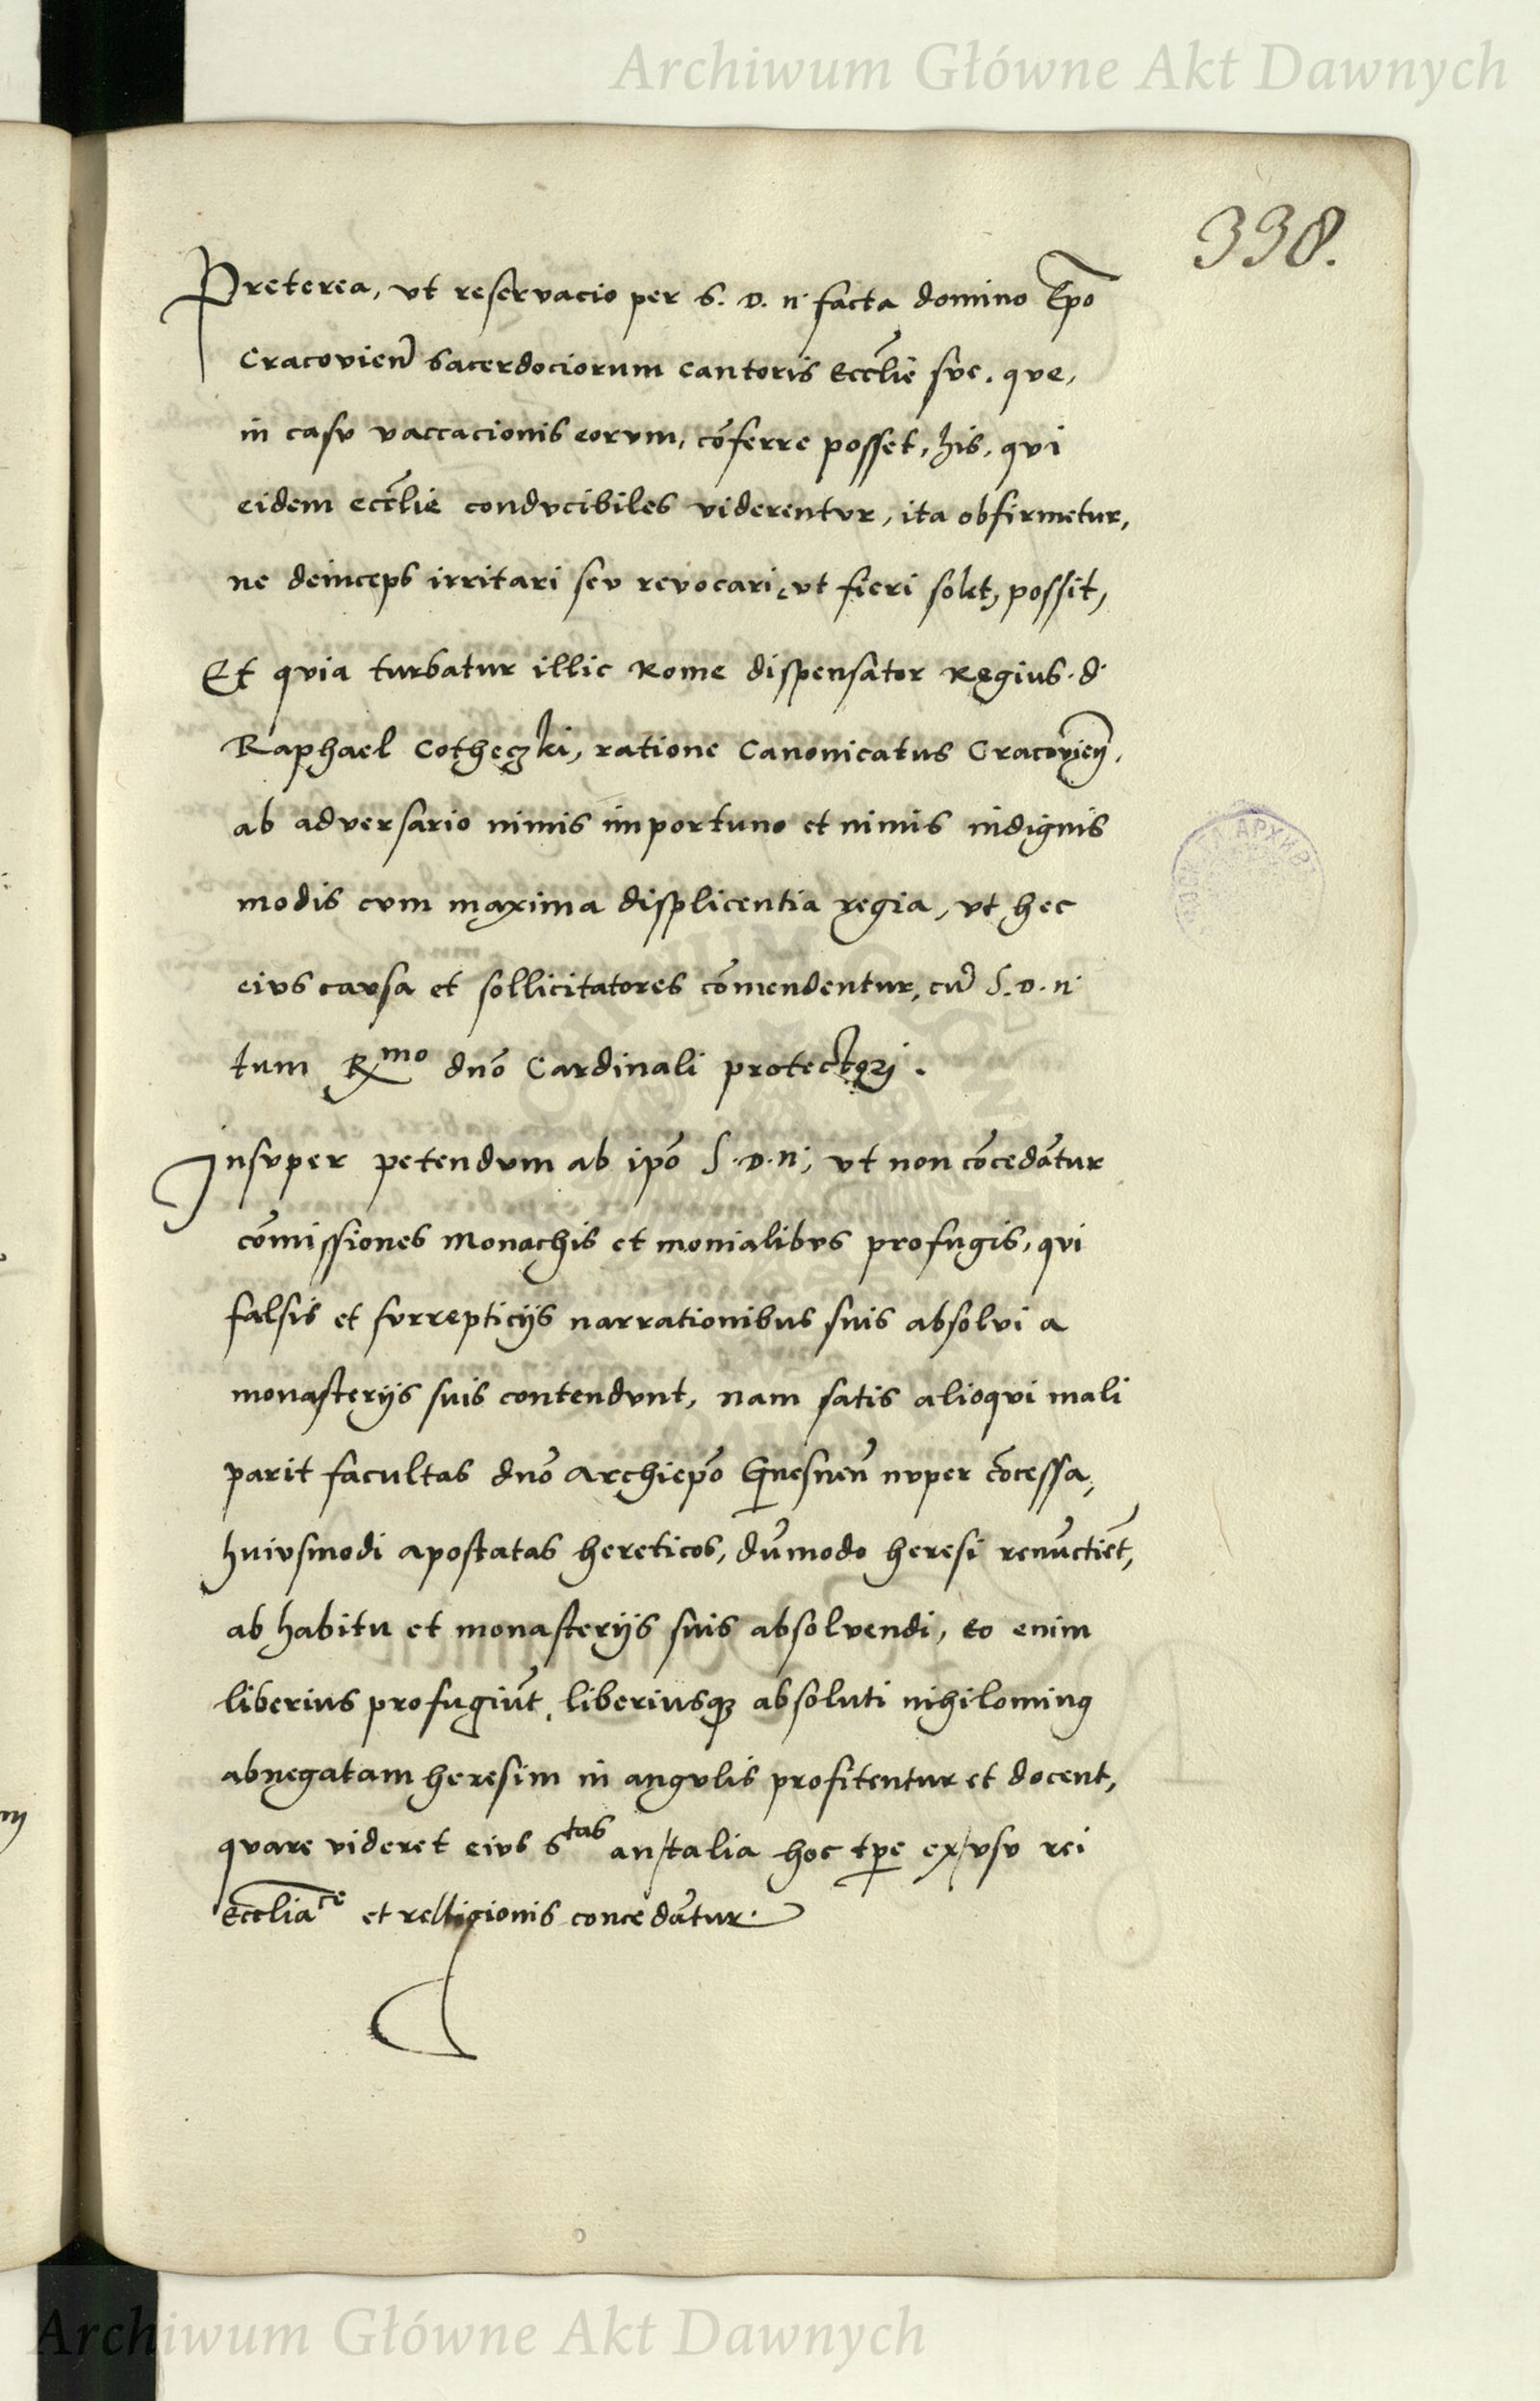 Archiwum Główne Akt Dawnych
338.
Preterea, vt reservacio per S. D. n. facta domino Ep̄o
Cracovień sacerdociorum cantoris Eccl̄ie sve, qve,
in casv vaccacionis eorvm, cōferre posset, his, qvi
eidem eccl̄ie condvcibiles viderentvr, ita obfirmetur,
ne deinceps irritari sev revocari, vt fieri solet, possit,
Et qvia turbatur illic Rome dispensator Regius. d.
Raphael Cotheczki, ratione Canonicatus Cracovień.
ab adversario nimis importuno et nimis indignis
modis cvm maxima displicentia regia, vt hec
eivs cavsa et sollicitatores cōmendentur, cū S. D. n.
tum R^mo dnō Cardinali protectori.
Insvper petendvm ab ipō S. D. n., vt non cōcedātur
cōmissiones Monachis et monialibvs profugis, qvi
falsis et svrrepticijs narrationibus suis absolvi a
monasterijs suis contendvnt, nam satis alioqvi mali
parit facultas dnō Archiepō Gnesneń nvper cōcessa,
hvivsmodi apostatas hereticos, dūmodo heresi renūctiēt,
ab habitu et monasterijs suis absolvendi, eo enim
liberius profugiūt, liberiusq₃ absoluti nihilominꝰ
abnegatam heresim in angvlis profitentur et docent,
qvare videret eivs S^tas an/talia hoc tp̄e ex/vsv rei
Eccl̄ia^ce et relligionis concedātur.
Archiwum Główne Akt Dawnych